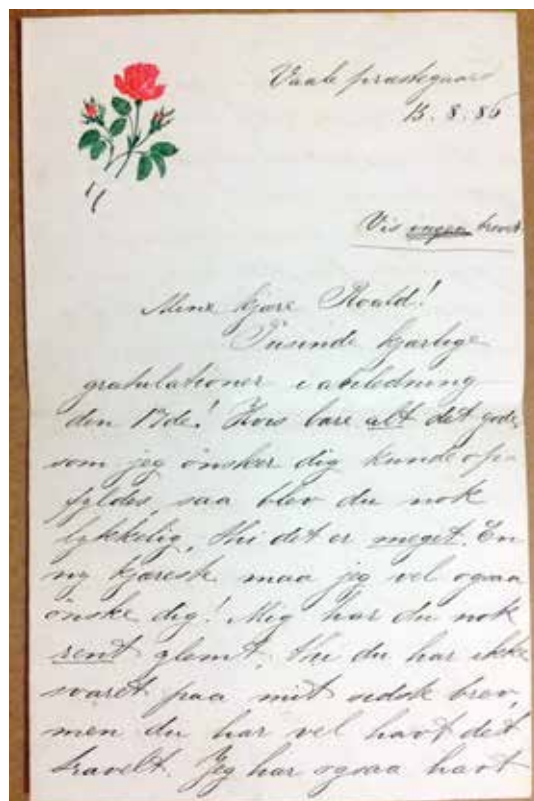 Vaale præstegaard
15. 8. 86
Vis ingen brevet
Mine kjære Roald!
Tusinde kjærlige
gratulationer i anledning
den 17de! Hvis bare alt det gode,
som jeg ønsker dig kunde op-
fyldes, saa blev du nok
lykkelig, thi det er meget. En
ny kjæreste maa jeg vel ogsaa
ønske dig! Mig har du nok
rent glemt, thi du har ikke
svaret paa mit sidste brev,
men du har vel havt det
travelt. Jeg har ogsaa havt